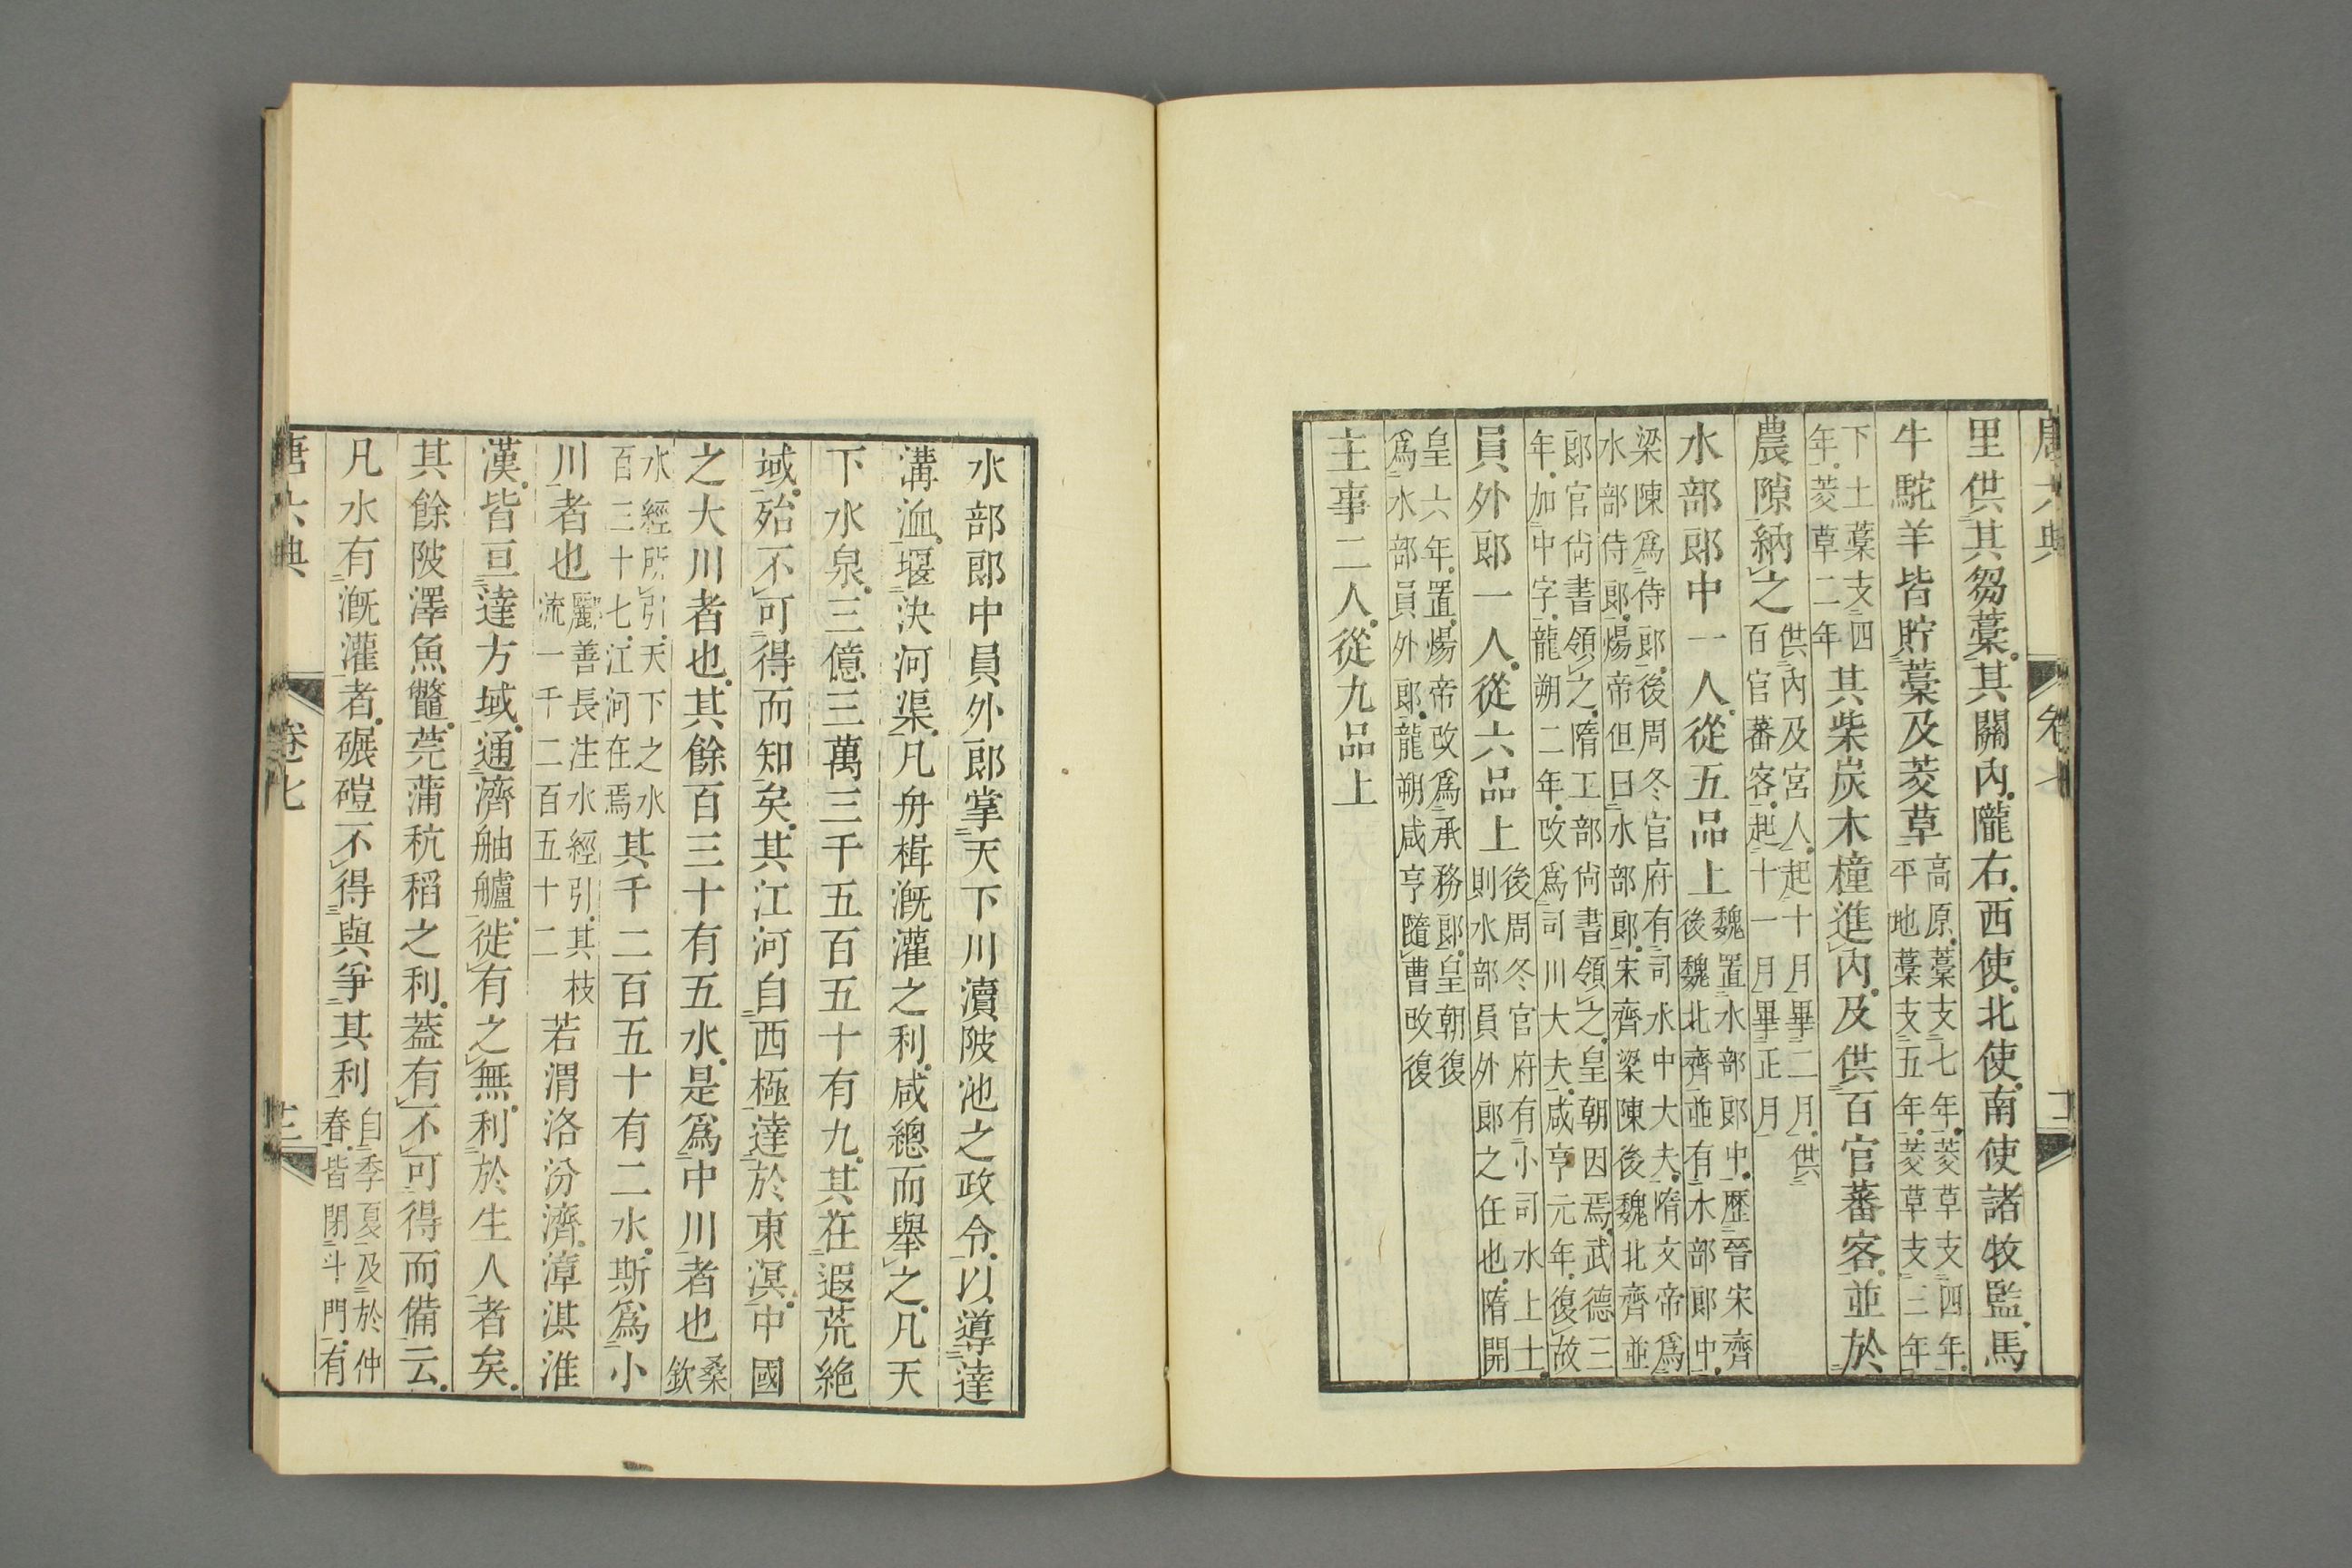 里供其芻藁其關內隴右西使北使南使諸牧監馬
牛駝羊皆貯藁及茭草高原藁支七年茭草支四年平地藁支五年茭草支三年
下土藁支四年茭草二年其柴炭木橦進內及供百官蕃客並於
農隙納之供內及宮人起十月畢二月供百官蕃客起十一月畢正月
水部郎中一人從五品上魏置水部郎中歷晉宋齊後魏北齊並有水部郎中
梁陳爲侍郎後周冬官府有司水中大夫隋文帝爲水部侍郎煬帝但曰水部郎宋齊梁陳後魏北齊並
郎官尚書領之隋工部尚書領之皇朝因焉武德三年加中字龍朔二年改爲司川大夫咸亨元年復故
員外郎一人從六品上後周冬官府有小司水上士則水部員外郎之任也隋開
皇六年置煬帝改爲承務郎皇朝復爲水部員外郎龍朔咸亨隨曹改復
主事二人從九品上
唐六典 卷七
水部郎中員外郎掌天下川瀆陂池之政令以導達
溝洫堰決河渠凡舟楫漑灌之利咸總而舉之凡天
下水泉三億三萬三千五百五十有九其在遐荒絶
域殆不可得而知矣其江河自西極達於東溟中國
之大川者也其餘百三十有五水是爲中川者也桑欽
水經所引天下之水百三十七江河在焉其千二百五十有二水斯爲小
川者也酈善長注水經引其枝流一千二百五十二若渭洛汾濟漳淇淮
漢皆亘達方域通濟舳艫徙有之無利於生人者矣
其餘陂澤魚鼈莞蒲秔稻之利蓋有不可得而備云
凡水有漑灌者碾磑不得與爭其利自季夏及於仲春皆閉斗門有
唐六典 卷七